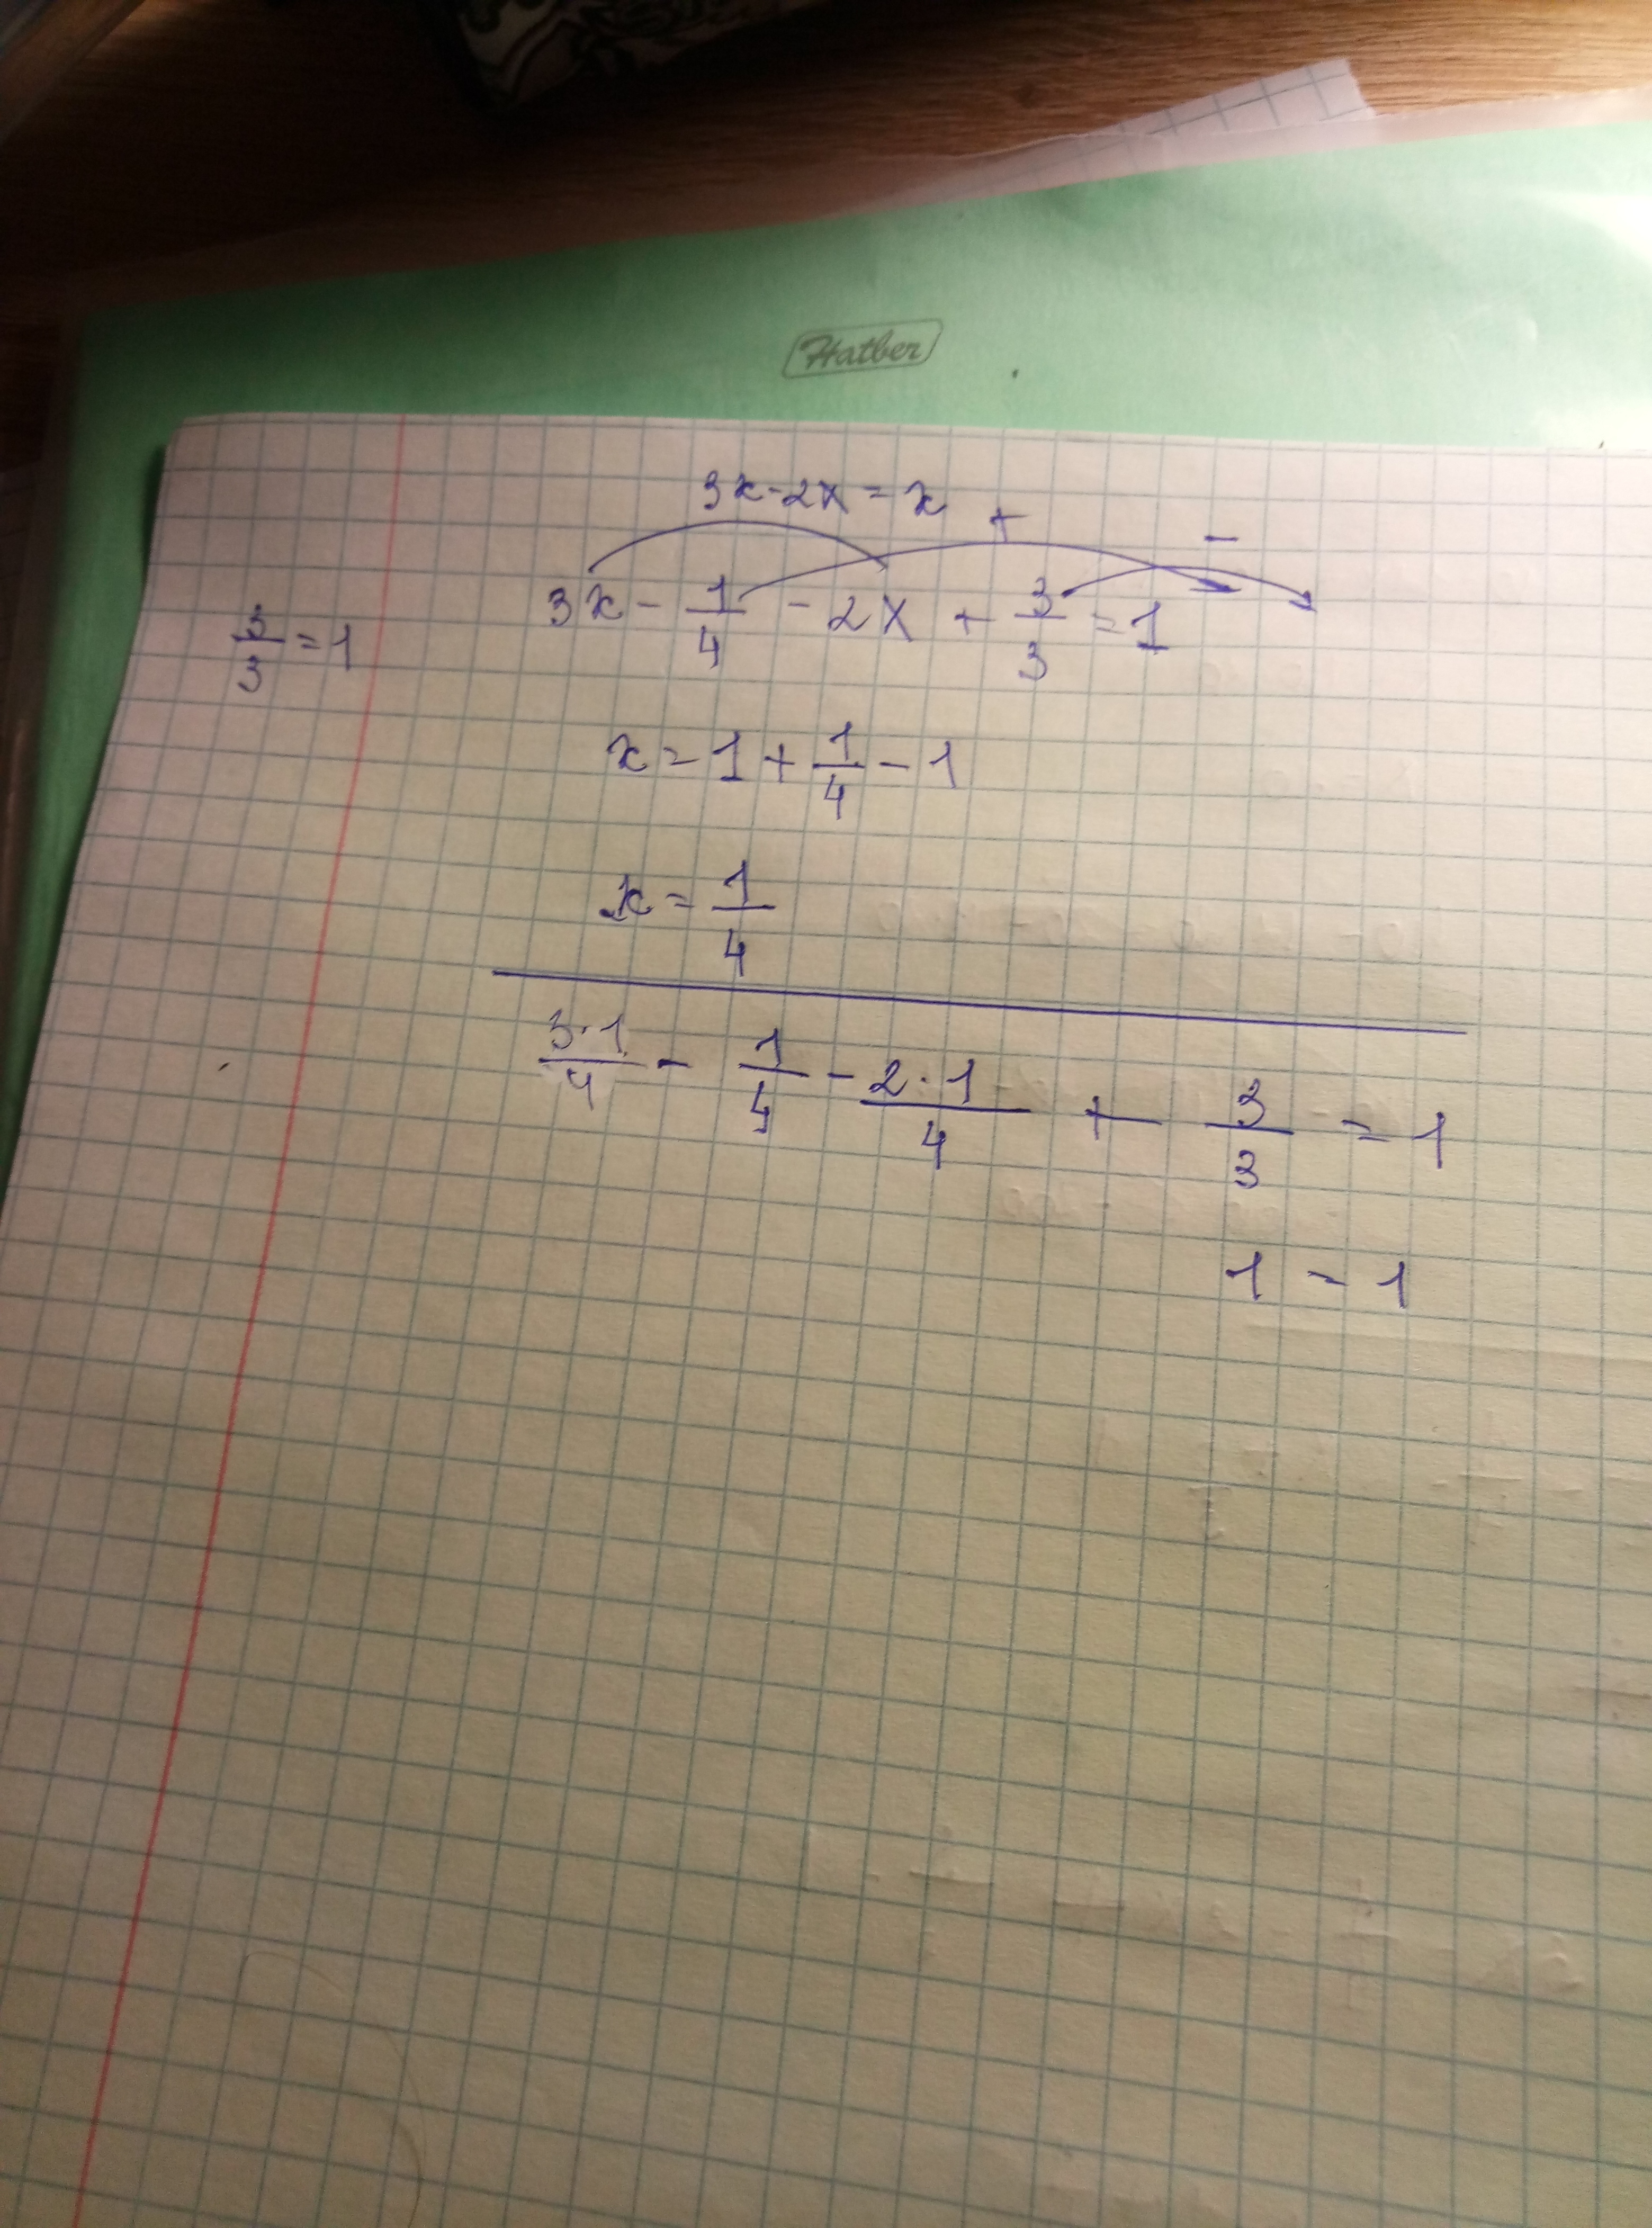 Hatber
3x-2x=x
+ -
3x - 1/4 - 2x + 3/3 = 1
3/3 = 1
x = 1 + 1/4 - 1
x = 1/4
3·1/4 - 1/4 - 2·1/4 + 3/3 = 1
1 = 1